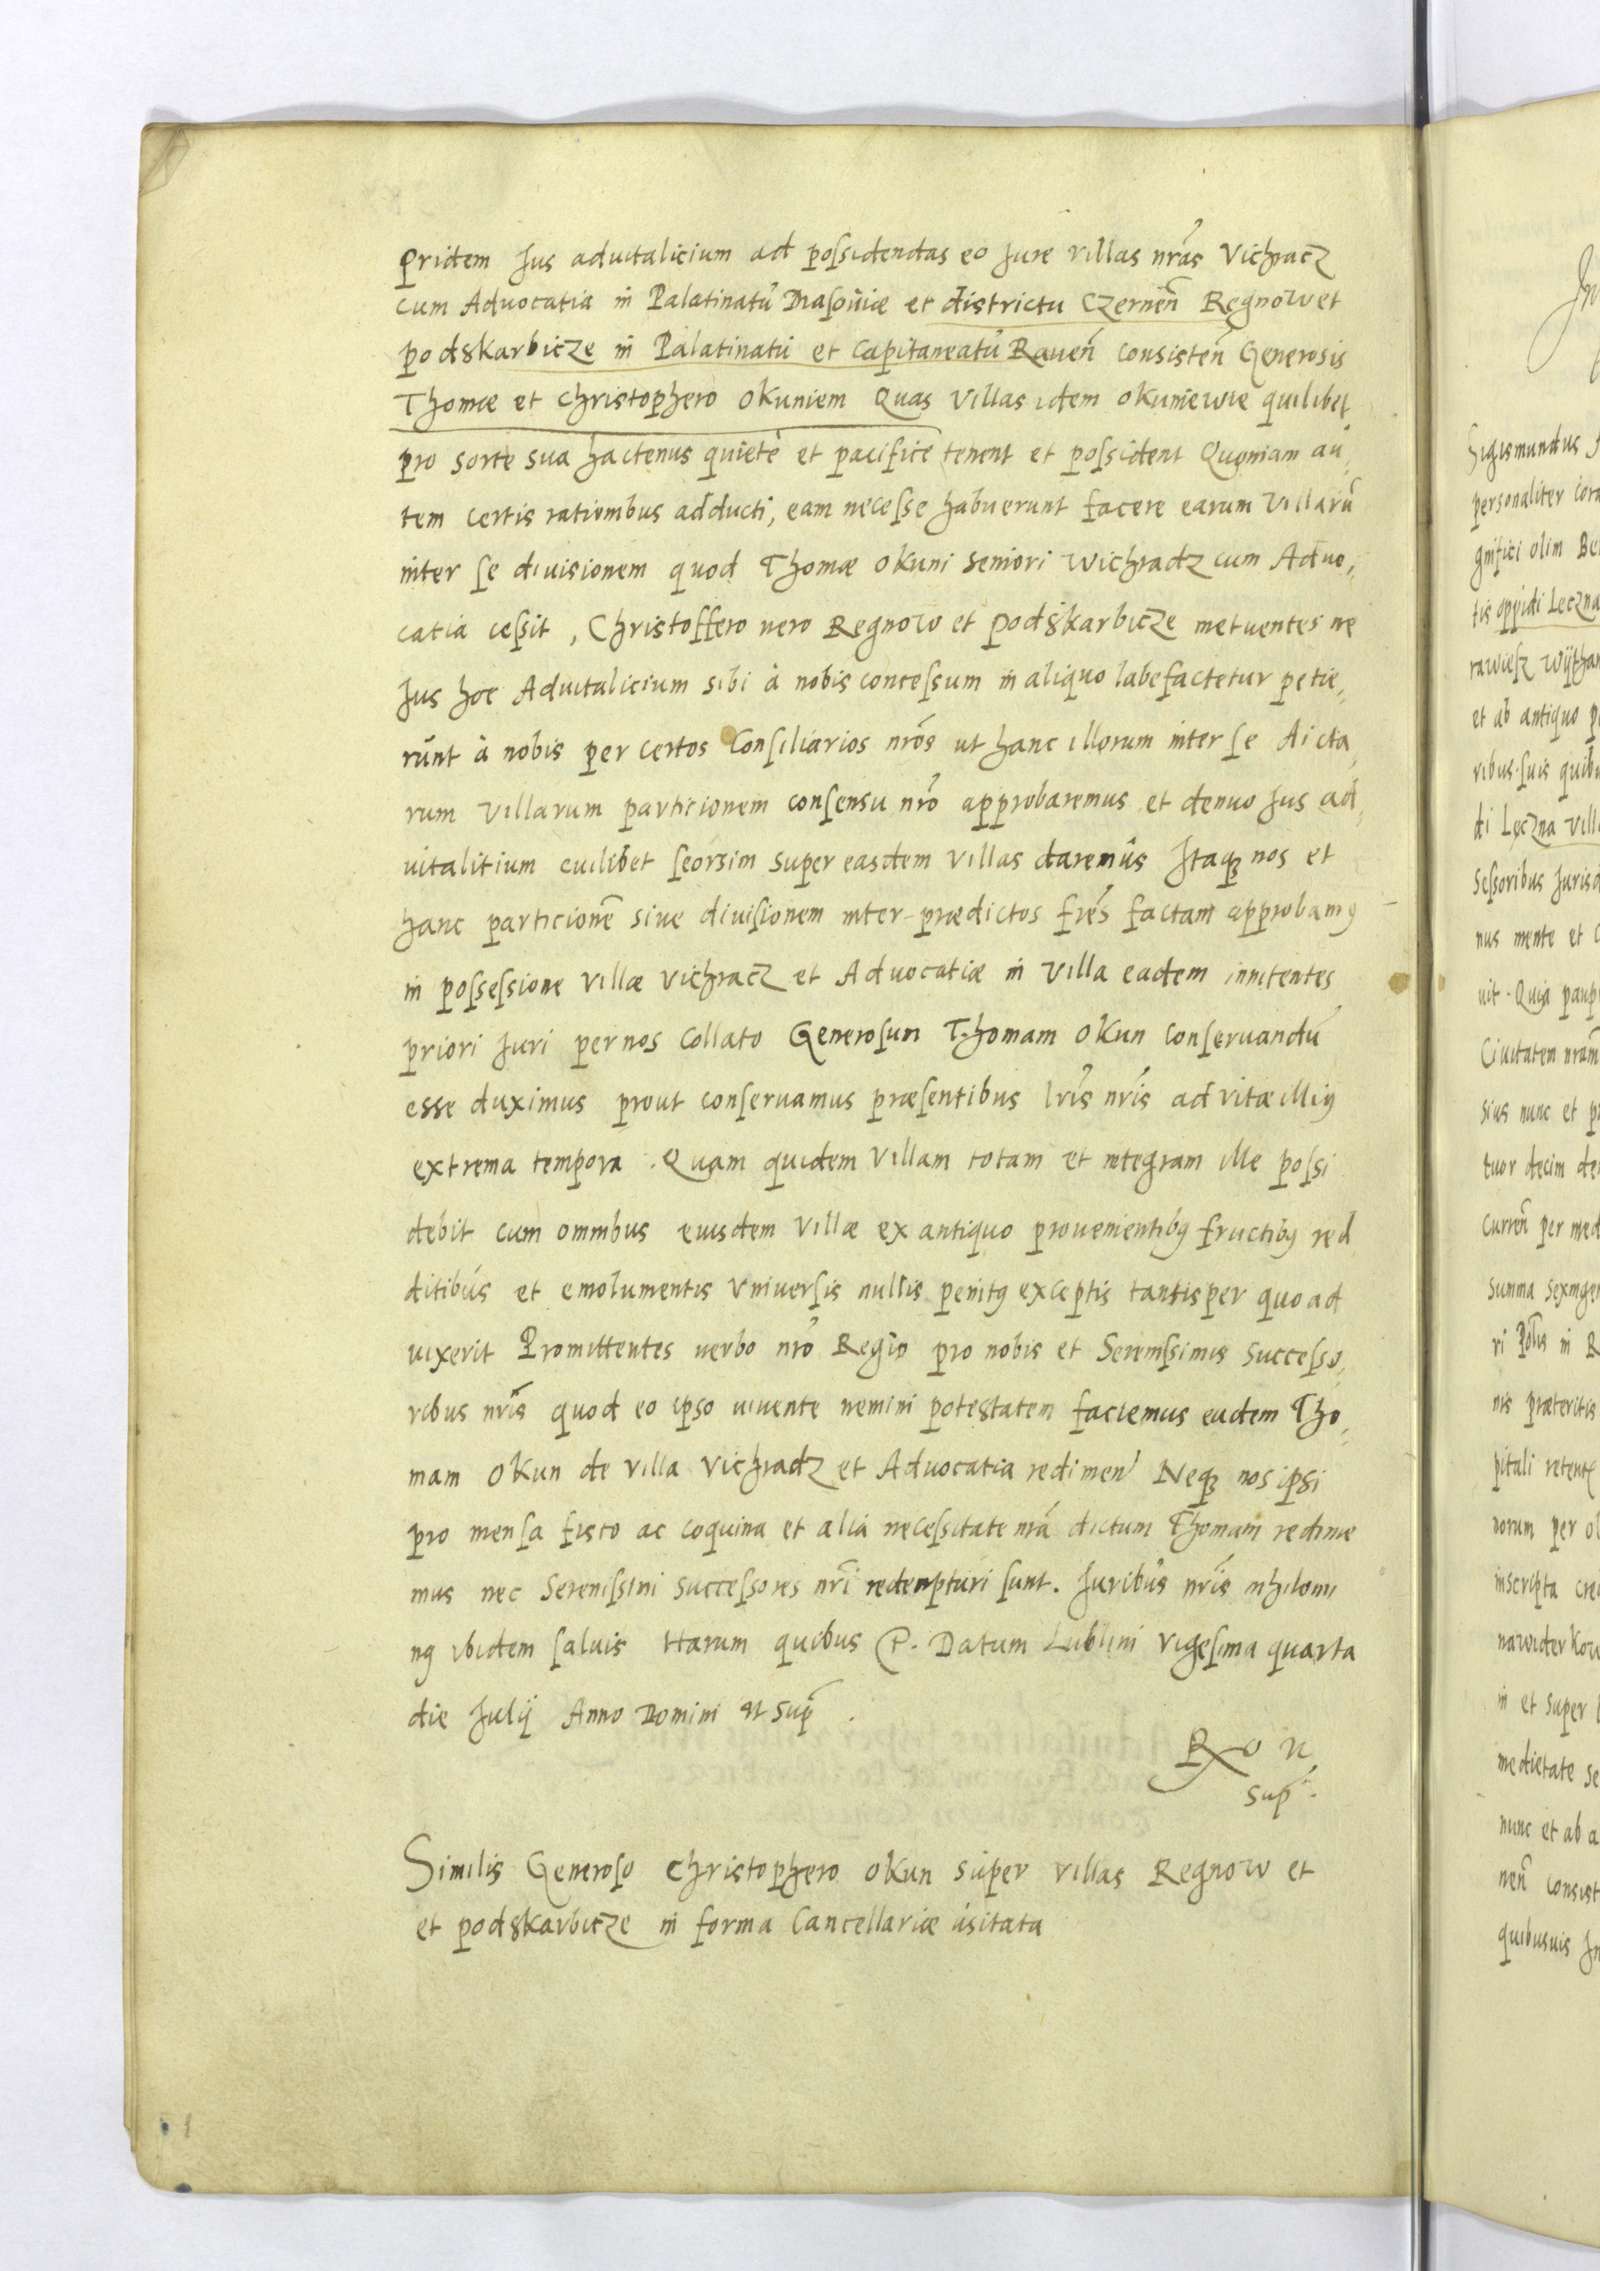 pridem Jus aduitalicium ad possidendas eo Jure villas nrās Vichracz
cum Aduocatia in Palatinatu Masouiæ et districtu Czernen̄ Regnow et
podskarbicze in Palatinatu et Capitaneatu Rauen̄ consisten̄ Generosis
Thomæ et Christophero Okuniem Quas Villas idem Okuniewie quilibet
pro sorte sua hactenus quietè et pacifice tenent et possident Quoniam au,
tem certis rationibus adducti, eam necesse habuerunt facere earum Villarū
inter se diuisionem quod Thomæ Okuni Seniori Wichradz cum Aduo,
catia cessit, Christoffero uero Regnow et Podskarbicze metuentes ne
Jus hoc Aduitalicium sibi à nobis concessum in aliquo labefactetur petie,
runt à nobis per certos Consiliarios nrōs ut hanc illorum inter se dicta,
rum Villarum particionem consensu nrō approbaremus et denuo Jus ad,
uitalitium cuilibet seorsim super easdem villas daremus Itaqꝫ nos et
hanc particionē siue diuisionem inter prædictos frēs factam approbamꝰ
in possessione villæ Vichracz et Aduocatiæ in Villa eadem innitentes
priori Juri per nos collato Generosum Thomam Okun conseruandū
esse duximus prout conseruamus præsentibus lrīs nrīs ad vitæ illiꝰ
extrema tempora. Quam quidem Villam totam et integram ille possi
debit cum omnibus eiusdem Villæ ex antiquo prouenientibꝰ fructibꝰ red
ditibus et emolumentis Vniuersis nullis penitꝰ exceptis tantisper quoad
uixerit Promittentes uerbo nrō Regio pro nobis et Serenissimis Successo,
ribus nrīs quod eo ipso uiuente nemini potestatem faciemus eudem Tho,
mam Okun de villa Vichradz et Aduocatia redimen̄ Neqꝫ nos ipsi
pro mensa fisco ac coquina et alia necessitate nrā dictum Thomam redime
mus nec Serenissimi Successores nrī redempturi sunt. Juribus nrīs nihilomi
nꝰ ibidem saluis Harum quibus &. Datum Lublini vigesima quarta
die Julij Anno Domini ut sup̄.
R o u
sup̄.
Similis Generoso Christophero Okun super villas Regnow et
et podskarbicze in forma Cancellariæ usitata
Sigismundus
personaliter cora
gnifici olim Be
tis oppidi Leczna
et ab antiquo p
ribus suis quibu
di Leczna vill
Sessoribus Jurisd
nus mente et c
uit. Quia paup
Ciuitatem nram
sius nunc et p
tuor decim de
Curren̄ per med
Summa Sexinge
nis præteritis
inscripta cre
in et super
medietate Se
nunc et ab a
nen̄ consist
quibusuis